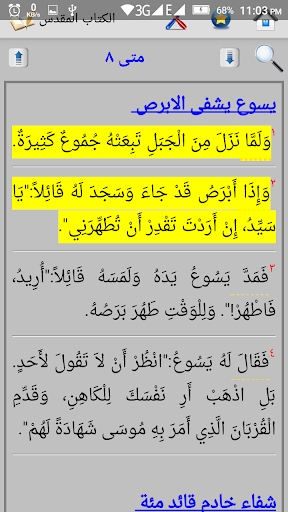 0 KB/s 3G E 68% 11:03 PM
الكتاب المقدس
متى ٨
يسوع يشفى الابرص
١وَلَمَّا نَزَلَ مِنَ الْجَبَلِ تَبِعَتْهُ جُمُوعٌ كَثِيرَةٌ.
٢وَإِذَا أَبْرَصُ قَدْ جَاءَ وَسَجَدَ لَهُ قَائِلاً:"يَا
سَيِّدُ، إِنْ أَرَدْتَ تَقْدِرْ أَنْ تُطَهِّرَنِي".
٣فَمَدَّ يَسُوعُ يَدَهُ وَلَمَسَهُ قَائِلاً:"أُرِيدُ،
فَاطْهُرْ!". وَلِلْوَقْتِ طَهُرَ بَرَصُهُ.
٤فَقَالَ لَهُ يَسُوعُ:"انْظُرْ أَنْ لاَ تَقُولَ لأَحَدٍ.
بَلِ اذْهَبْ أَرِ نَفْسَكَ لِلْكَاهِنِ، وَقَدِّمِ
الْقُرْبَانَ الَّذِي أَمَرَ بِهِ مُوسَى شَهَادَةً لَهُمْ".
شفاء خادم قائد مئة